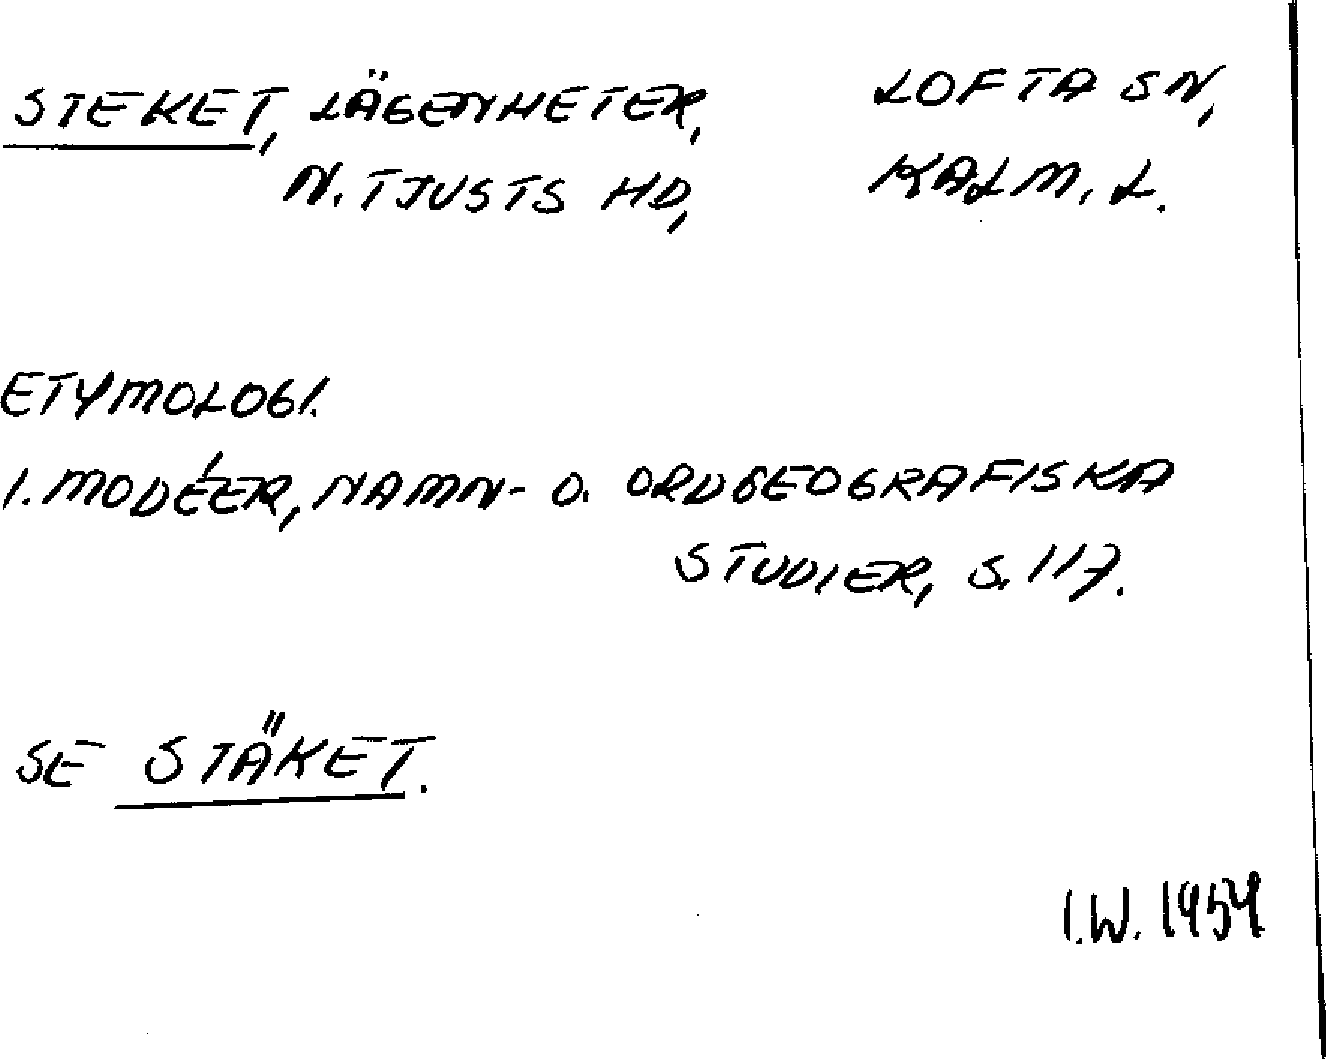 STEKET, LÄGENHETER, LOFTA SN,
N. TJUSTS HD, KALM. L.
ETYMOLOGI.
I. MODÉER, NAMN- O. ORDGEOGRAFISKA
STUDIER, S. 117.
SE STÄKET.
I.W. 1954